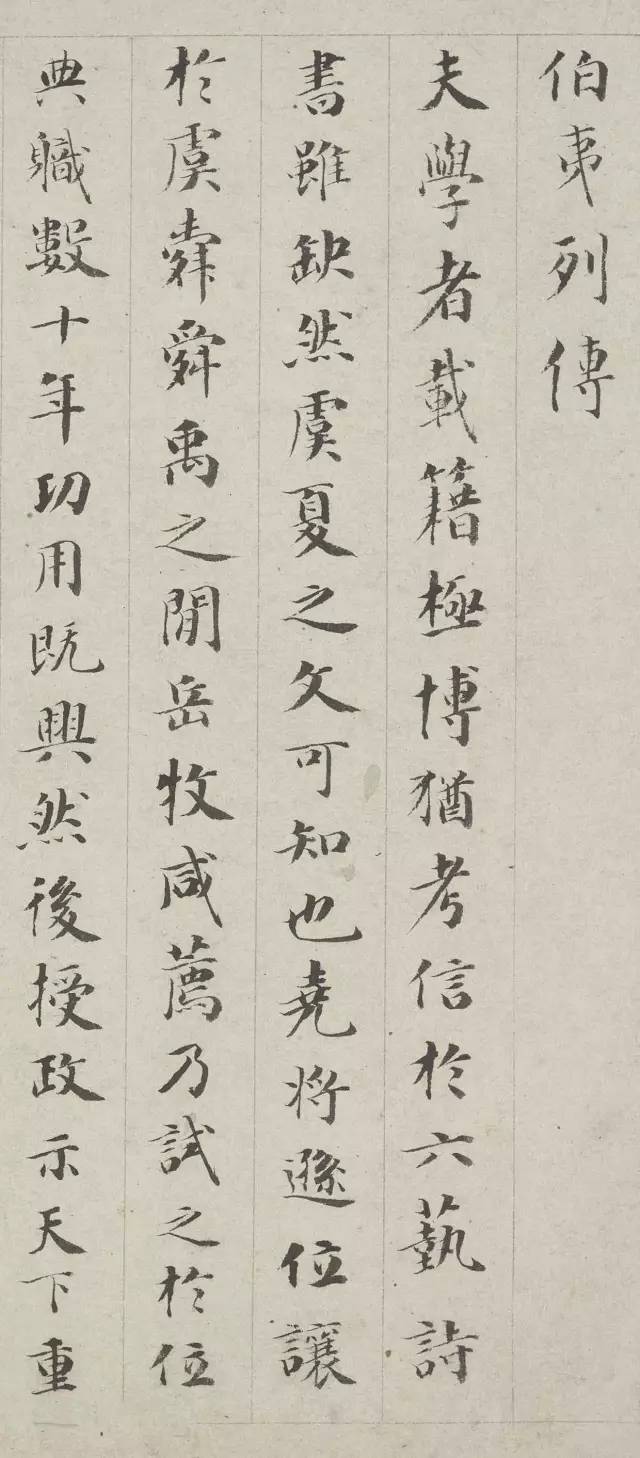 伯夷列傳
夫學者載籍極博猶考信於六蓺詩
書雖缺然虞夏之文可知也堯將遜位讓
於虞舜舜禹之閒岳牧咸薦乃試之於位
典軄數十年功用既興然後授政示天下重